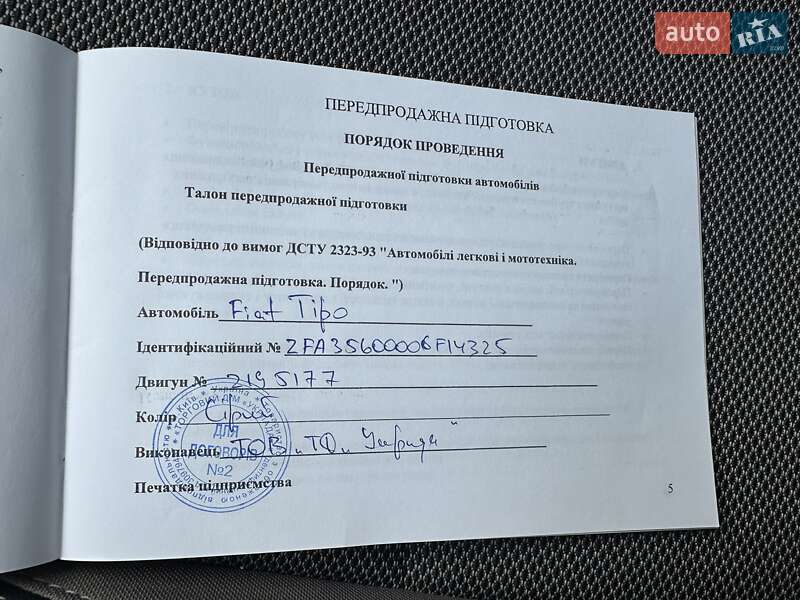 auto RIA
ПЕРЕДПРОДАЖНА ПІДГОТОВКА
ПОРЯДОК ПРОВЕДЕННЯ
Передпродажної підготовки автомобілів
Талон передпродажної підготовки
(Відповідно до вимог ДСТУ 2323-93 "Автомобілі легкові і мототехніка.
Передпродажна підготовка. Порядок. ")
Автомобіль Fiat Tipo
Ідентифікаційний № ZFA35600006F14325
Двигун № 2195177
Колір Сірий
Виконавець ТОВ „ТД „
Печатка підприємства
ДЛЯ
ДОГОВОРІВ
№2
5